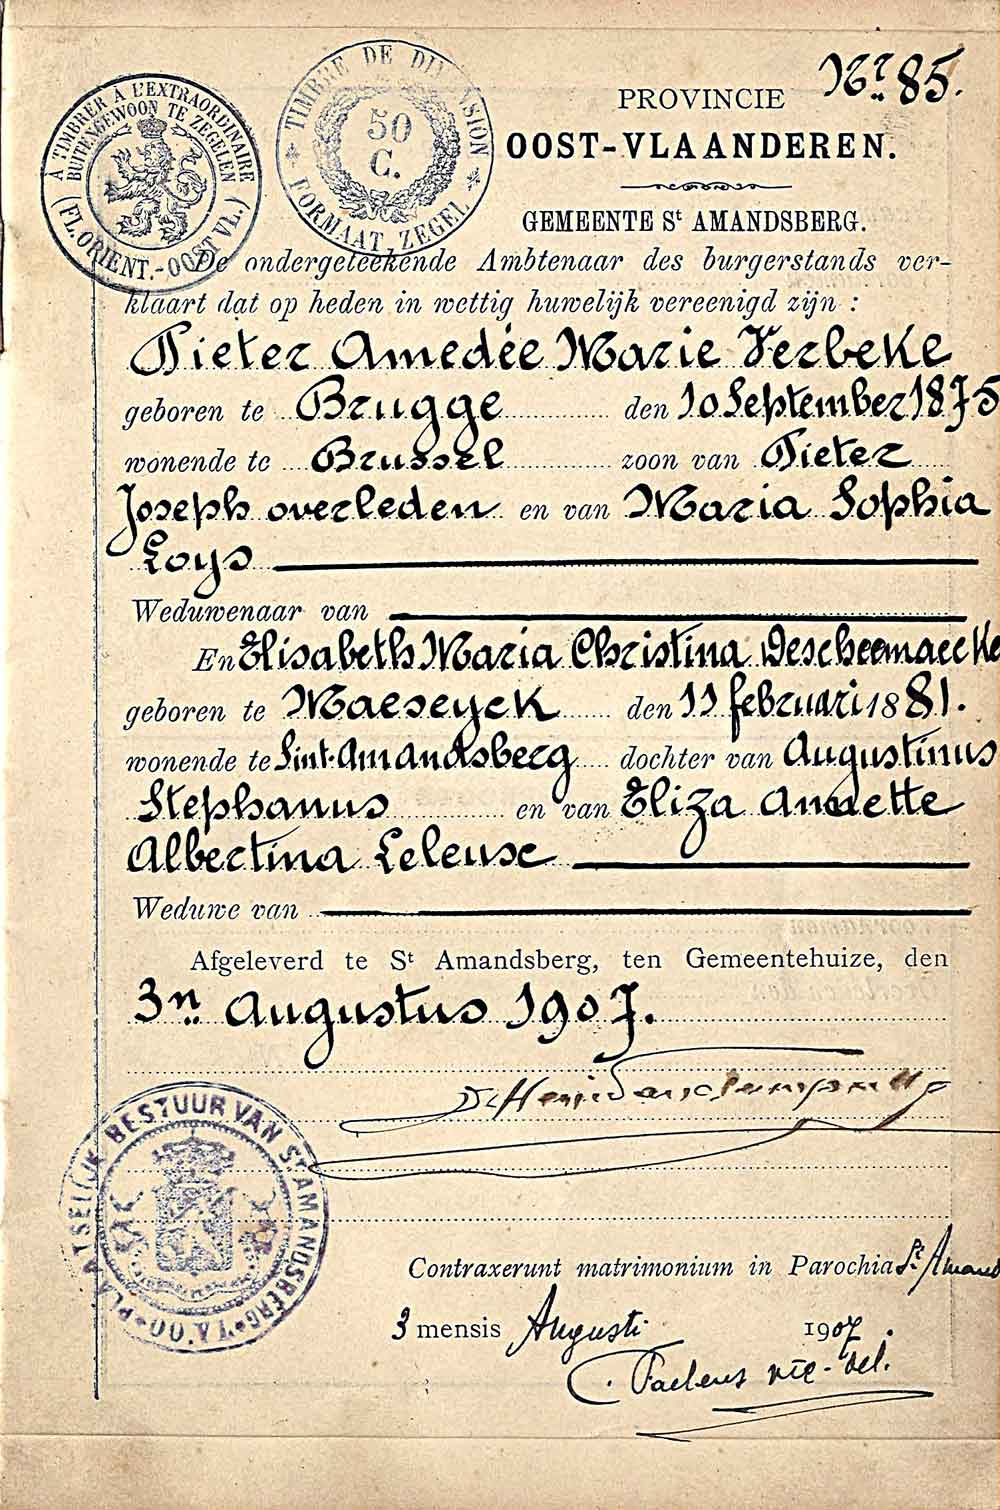 Nr. 85.
A TIMBRER A L'EXTRAORDINAIRE
BUITENGEWOON TE ZEGELEN
(FL. ORIENT.-OOST VL.)
TIMBRE DE DIMENSION
50
C.
* FORMAAT ZEGEL *
PROVINCIE
OOST-VLAANDEREN.
GEMEENTE St AMANDSBERG.
De ondergeteekende Ambtenaar des burgerstands ver-
klaart dat op heden in wettig huwelijk vereenigd zijn :
Pieter Amedée Marie Verbeke
geboren te Brugge den 10 September 1875
wonende te Brussel zoon van Pieter
Joseph overleden en van Maria Sophia
Loys
Weduwenaar van
En Elisabeth Maria Christina Descheemaecke
geboren te Maeseyck den 11 februari 1881.
wonende te Sint-Amandsberg dochter van Augustinus
Stephanus en van Eliza Annette
Albertina Leleuse
Weduwe van
Afgeleverd te St Amandsberg, ten Gemeentehuize, den
3n Augustus 1907.
PLAATSELIJK BESTUUR VAN St AMANDSBERG
Contraxerunt matrimonium in Parochia St Amand
3 mensis Augusti 1907.